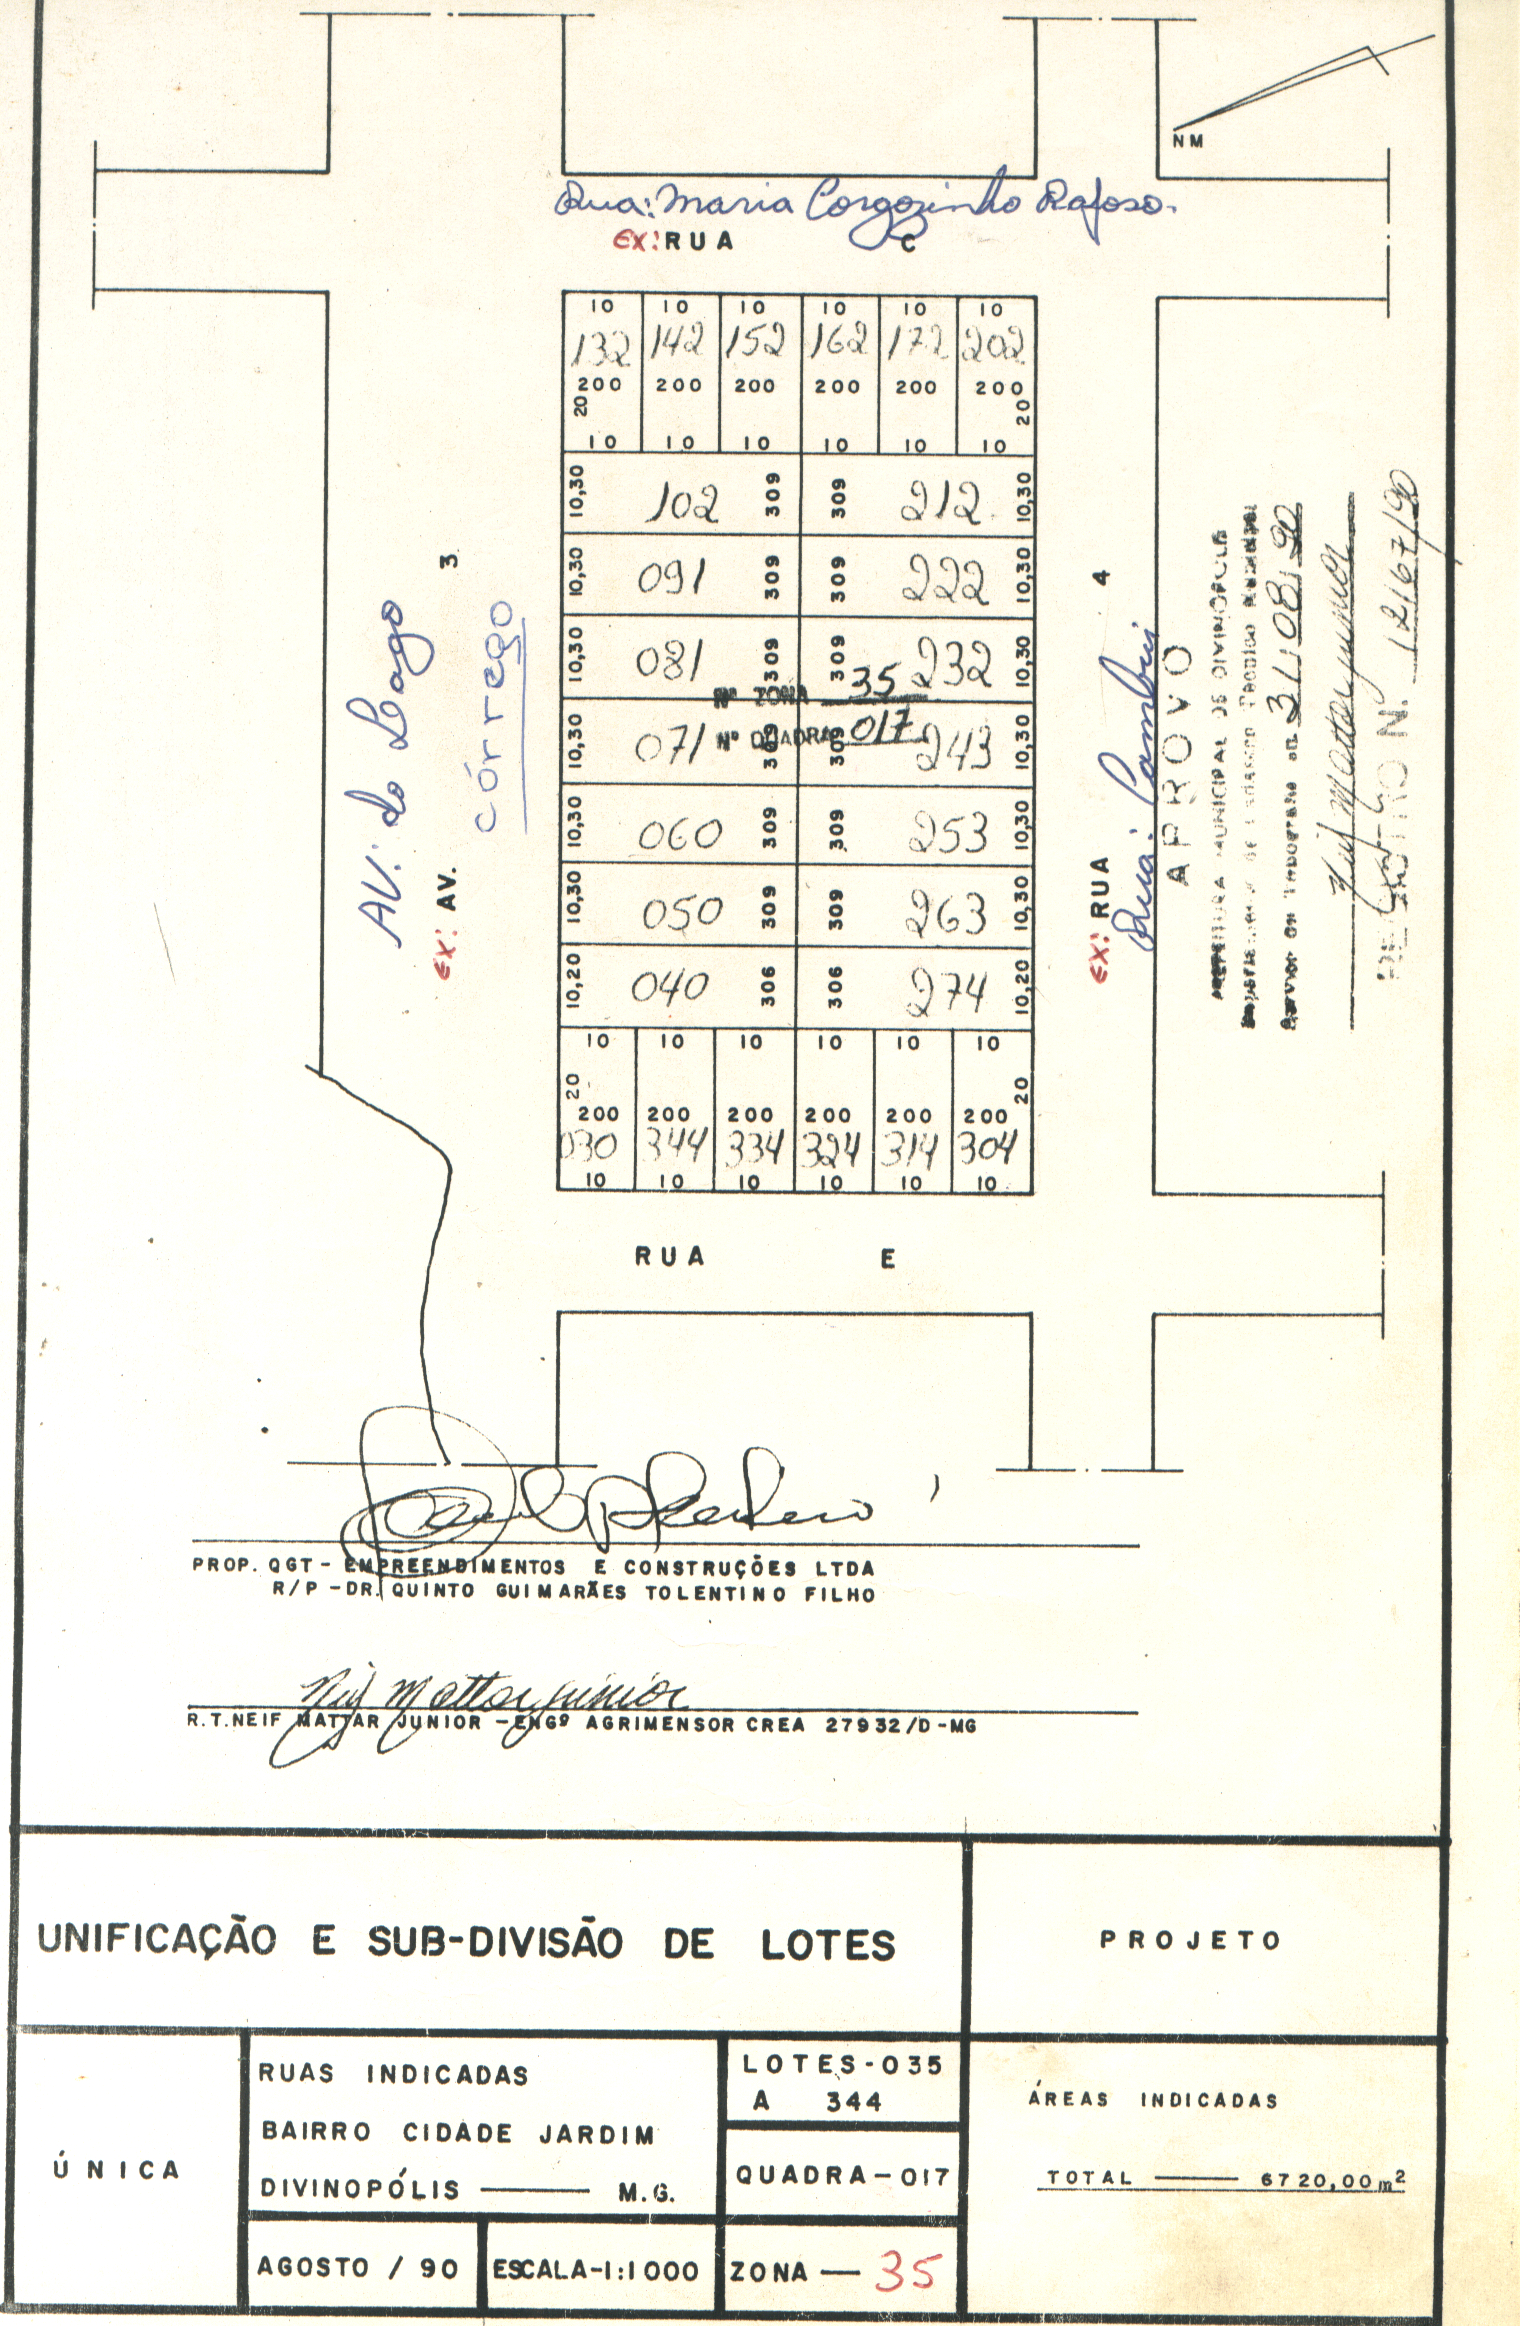 NM
Rua: Maria Corgozinho Rafoso.
EX: RUA C
10 10 10 10 10 10
132 142 152 162 172 202
200 200 200 200 200 200
20 20
10 10 10 10 10 10
10,30 102 309 309 212 10,30
10,30 091 309 309 222 10,30
10,30 081 309 309 232 10,30
Nº ZONA 35
Nº QUADRA 017
10,30 071 309 309 243 10,30
10,30 060 309 309 253 10,30
10,30 050 309 309 263 10,30
10,20 040 306 306 274 10,20
10 10 10 10 10 10
20 20
200 200 200 200 200 200
030 344 334 324 314 304
10 10 10 10 10 10
AV: do Lago
EX: AV. 3
córrego
EX: RUA 4
Rua: Cambuí
APROVO
PREFEITURA MUNICIPAL DE DIVINÓPOLIS
Departamento de Cadastro Técnico Municipal
Serviço de Topografia em 31/08/90
Neif Mattar Junior
REGISTRO N. 12167/90
RUA E
PROP. QGT - EMPREENDIMENTOS E CONSTRUÇÕES LTDA
R/P - DR. QUINTO GUIMARÃES TOLENTINO FILHO
Neif Mattar Junior
R.T. NEIF MATTAR JUNIOR - ENGº AGRIMENSOR CREA 27932/D-MG
UNIFICAÇÃO E SUB-DIVISÃO DE LOTES
PROJETO
ÚNICA
RUAS INDICADAS
BAIRRO CIDADE JARDIM
DIVINOPÓLIS —— M.G.
LOTES-035
A 344
QUADRA-017
ÁREAS INDICADAS
TOTAL —— 6720,00m²
AGOSTO / 90
ESCALA-1:1000
ZONA — 35